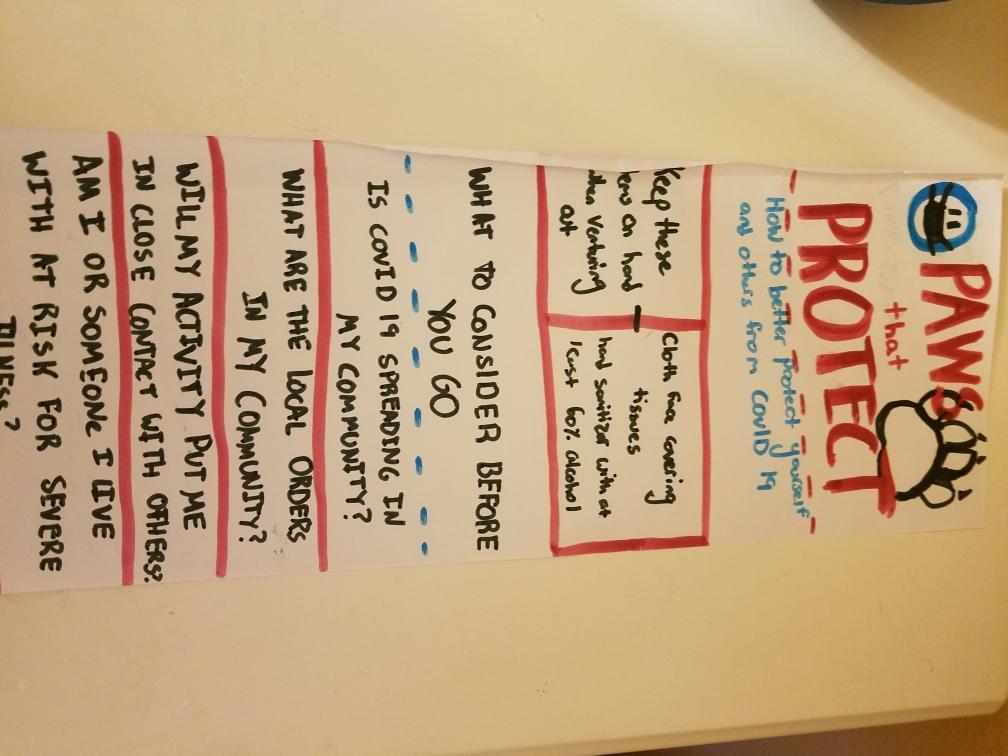 PAWS
that
PROTECT
How to better protect yourself
and others from COVID 19
Keep these
items on hand
when venturing
out
Cloth face covering
tissues
hand sanitizer with at
least 60% alcohol
WHAT TO CONSIDER BEFORE
YOU GO
IS COVID 19 SPREADING IN
MY COMMUNITY?
WHAT ARE THE LOCAL ORDERS
IN MY COMMUNITY?
WILL MY ACTIVITY PUT ME
IN CLOSE CONTACT WITH OTHERS?
AM I OR SOMEONE I LIVE
WITH AT RISK FOR SEVERE
ILLNESS?